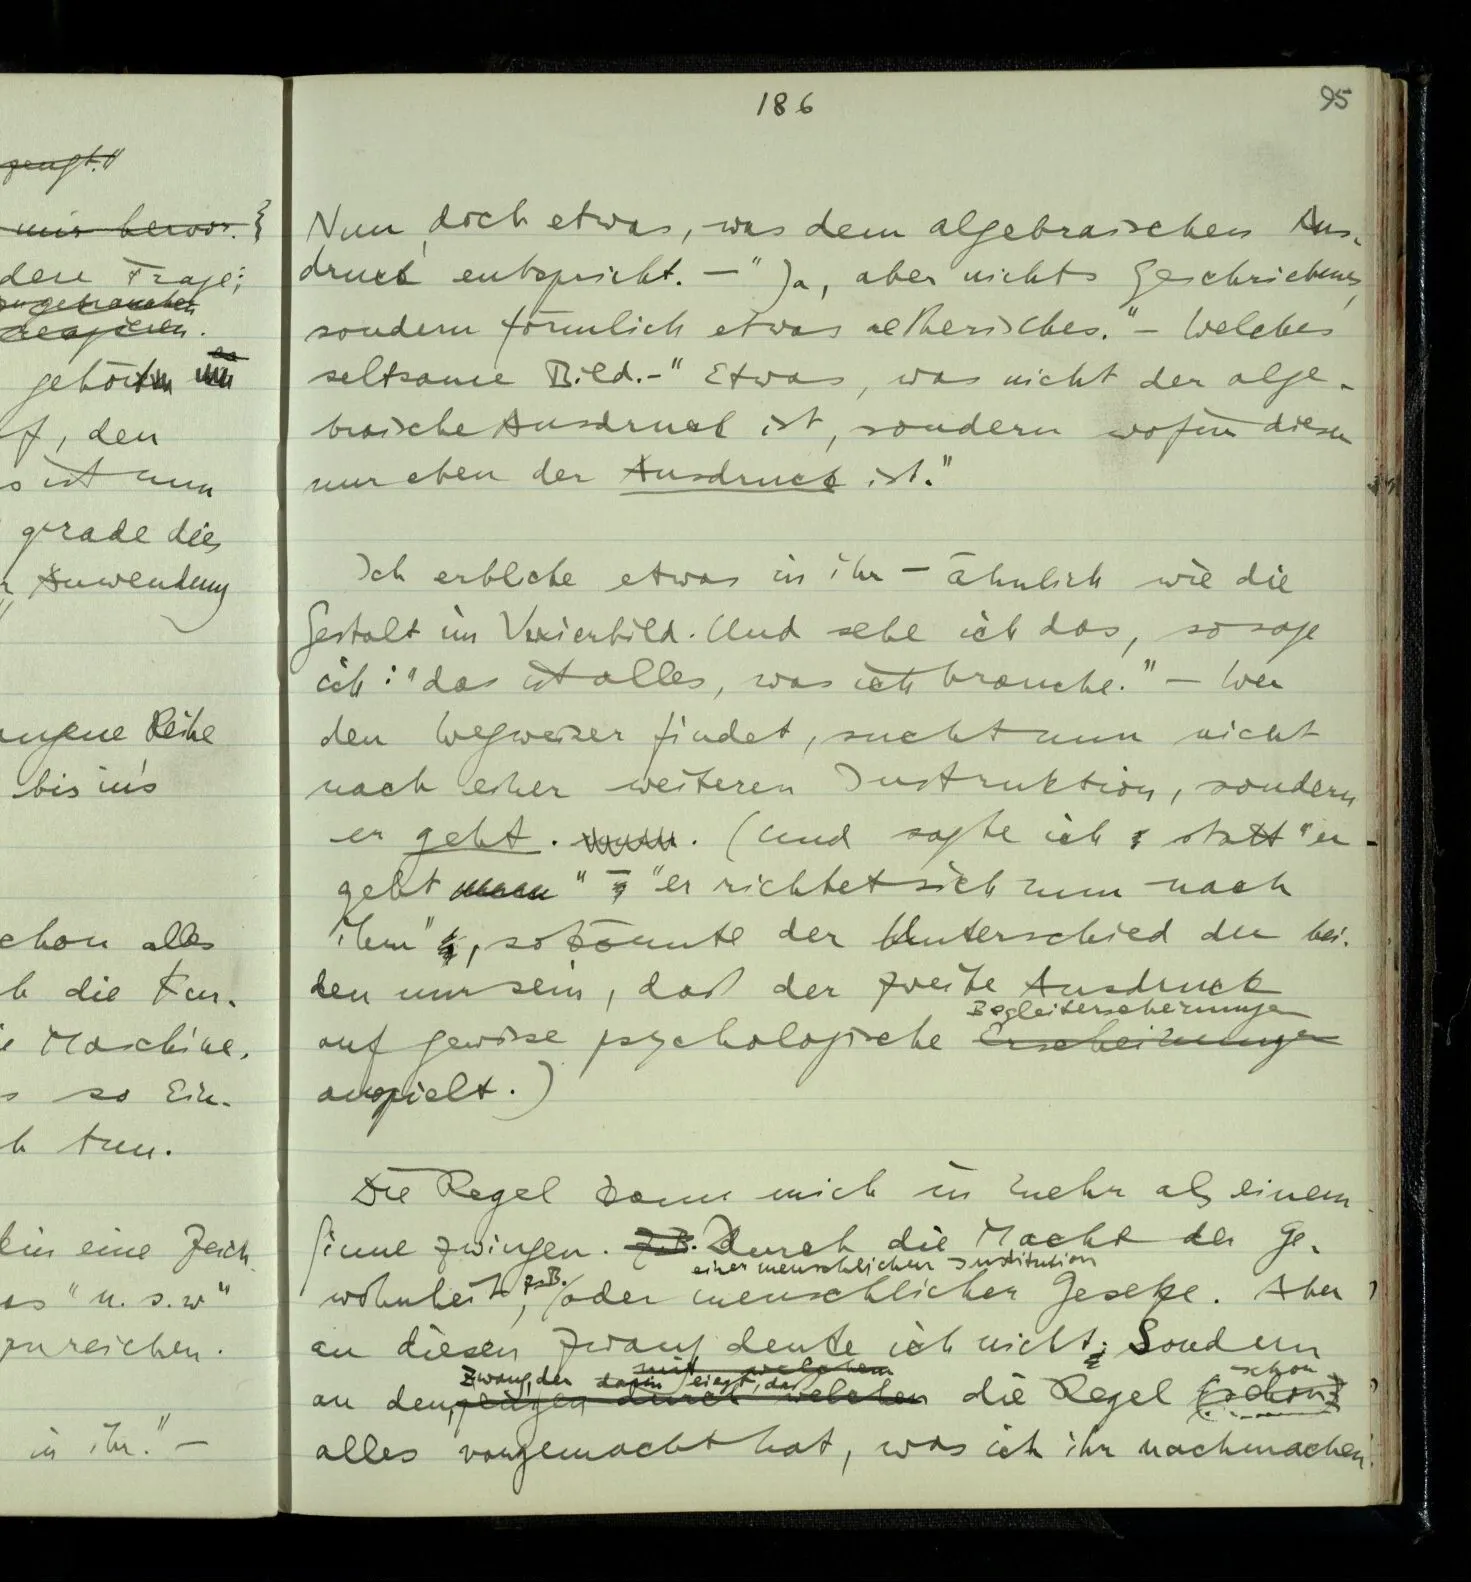 zeugt."
mir hervor. }
dere Frage;
zugebrauchen
reagieren.
gehört
f, den
s ist nun
gerade dies
r Anwendung
"
angene Reihe
bis in's
schon alles
h die Kur-
ie Maschine,
s so Ein-
h tun.
ein eine Zeich
as "u.s.w"
zureichen.
in ihr." —
186
95
Nun, doch etwas, was dem algebraischen Aus-
druck entspricht. — "Ja, aber nichts Geschriebenes,
sondern förmlich etwas aetherisches." — Welches
seltsame Bild. — "Etwas, was nicht der alge-
braische Ausdruck ist, sondern wofür dieser
nur eben der Ausdruck ist."
Ich erblicke etwas in ihr — ähnlich wie die
Gestalt im Vexierbild. Und sehe ich das, so sage
ich: "das ist alles, was ich brauche." — Wer
den Wegweiser findet, sucht nun nicht
nach einer weiteren Instruktion, sondern
er geht. (Und sagte ich statt "er
geht" "er richtet sich nun nach
ihm", so könnte der Unterschied der bei-
den nur sein, daß der zweite Ausdruck
Begleiterscheinungen
auf gewisse psychologische Erscheinungen
anspielt.)
Die Regel kann mich in mehr als einem
Sinne zwingen. z.B. Durch die Macht der Ge-
einer menschlichen Institution
wohnheit, z.B. oder menschlicher Gesetze. Aber
an diesen Zwang denke ich nicht; Sondern
mit welchem
Zwang, der darin liegt, daß schon
an den, durch welchen die Regel (schon)
alles vorgemacht hat, was ich ihr nachmachen